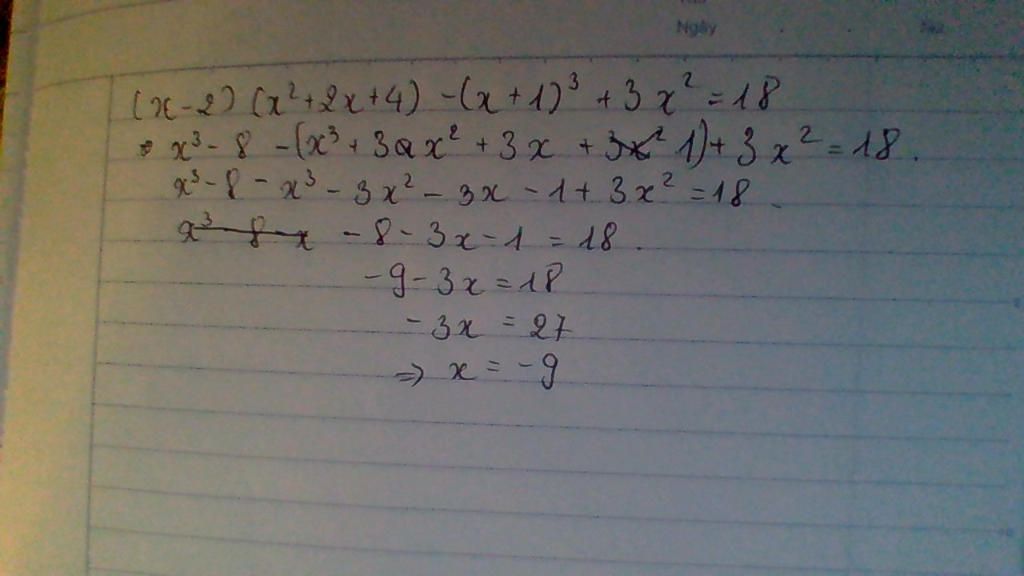 Ngày
No.
(x-2)(x²+2x+4) -(x+1)³ +3x²=18
x³-8 -(x³+3x²+3x+1)+3x²=18.
x³-8-x³-3x²-3x-1+3x²=18
x³ 8 x -8-3x-1=18.
-9-3x=18
-3x = 27
=> x = -9